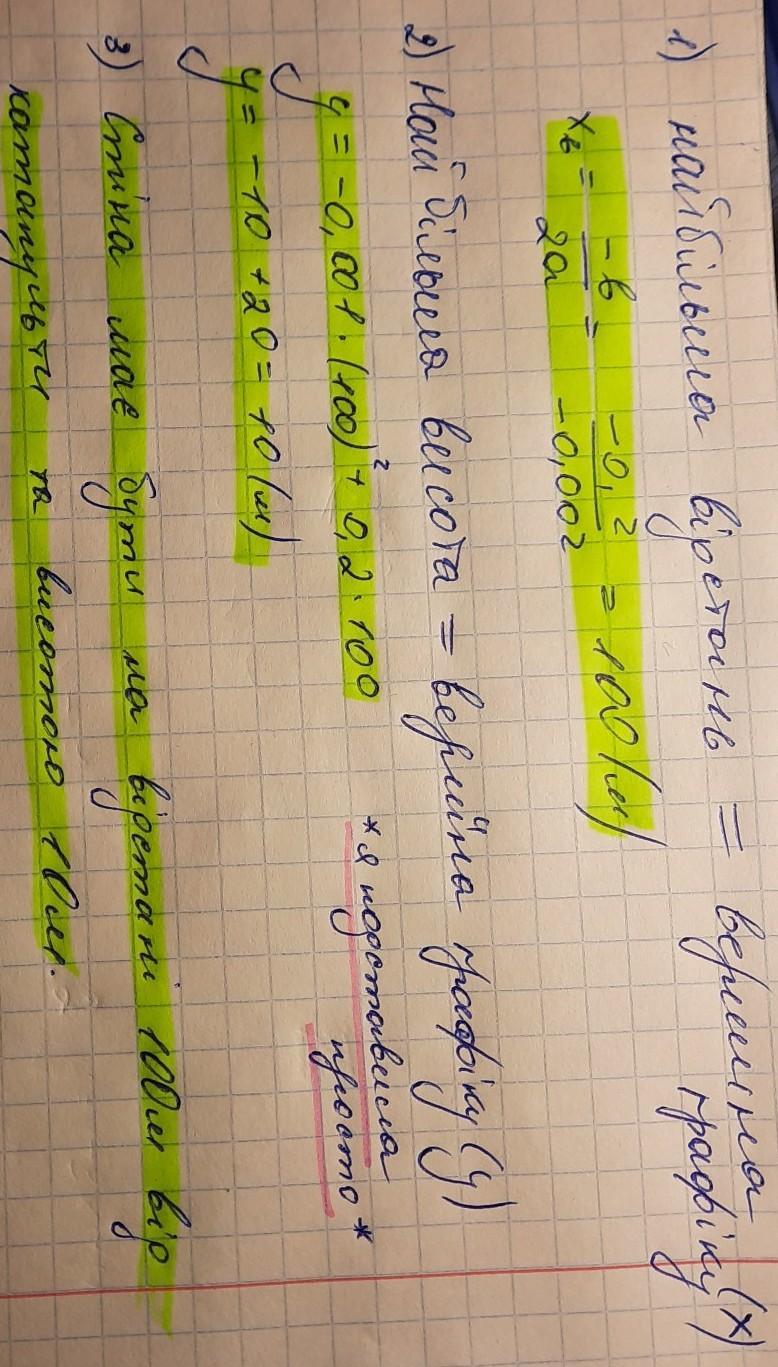 1) найбільша відстань = вершина графіку (x)
xв = -b/2a = -0,2/-0,002 = 100 (м)
2) Найбільша висота = вершина графіку (y)
y = -0,001 · (100)² + 0,2 · 100
*я подставила просто*
y = -10 + 20 = 10 (м)
3) Стіна має бути на відстані 100м від
катапульти та висотою 10м.